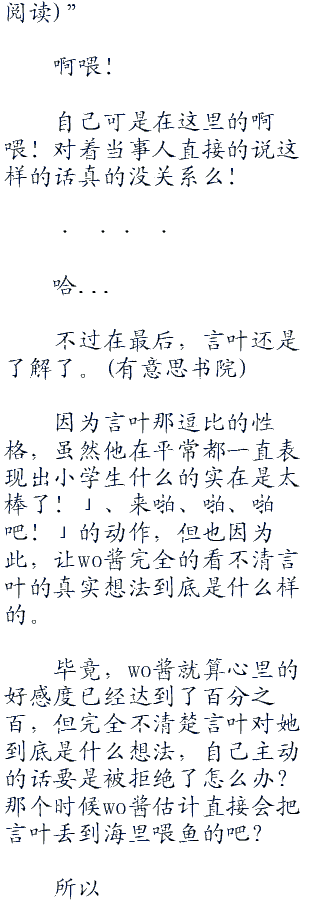 阅读)”
啊喂！
自己可是在这里的啊
喂！对着当事人直接的说这
样的话真的没关系么！
. . . .
哈...
不过在最后，言叶还是
了解了。(有意思书院)
因为言叶那逗比的性
格，虽然他在平常都一直表
现出小学生什么的实在是太
棒了！」、来啪、啪、啪
吧！」的动作，但也因为
此，让wo酱完全的看不清言
叶的真实想法到底是什么样
的。
毕竟，wo酱就算心里的
好感度已经达到了百分之
百，但完全不清楚言叶对她
到底是什么想法，自己主动
的话要是被拒绝了怎么办？
那个时候wo酱估计直接会把
言叶丢到海里喂鱼的吧？
所以